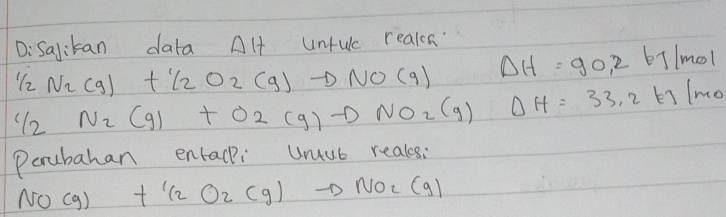 Disajikan data ΔH untuk reaksi:
1/2 N2 (g) + 1/2 O2 (g) → NO (g) ΔH = 90,2 kJ/mol
1/2 N2 (g) + O2 (g) → NO2 (g) ΔH = 33,2 kJ/mo
Perubahan entalpi untuk reaksi
NO (g) + 1/2 O2 (g) → NO2 (g)